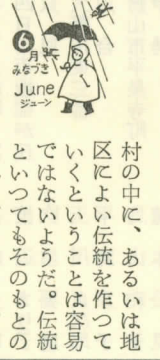 6
月
みなづき
June
ジューン
村の中に、あるいは地
区によい伝統を作つて
いくということは容易
ではないようだ。伝統
といつてもそのもとの